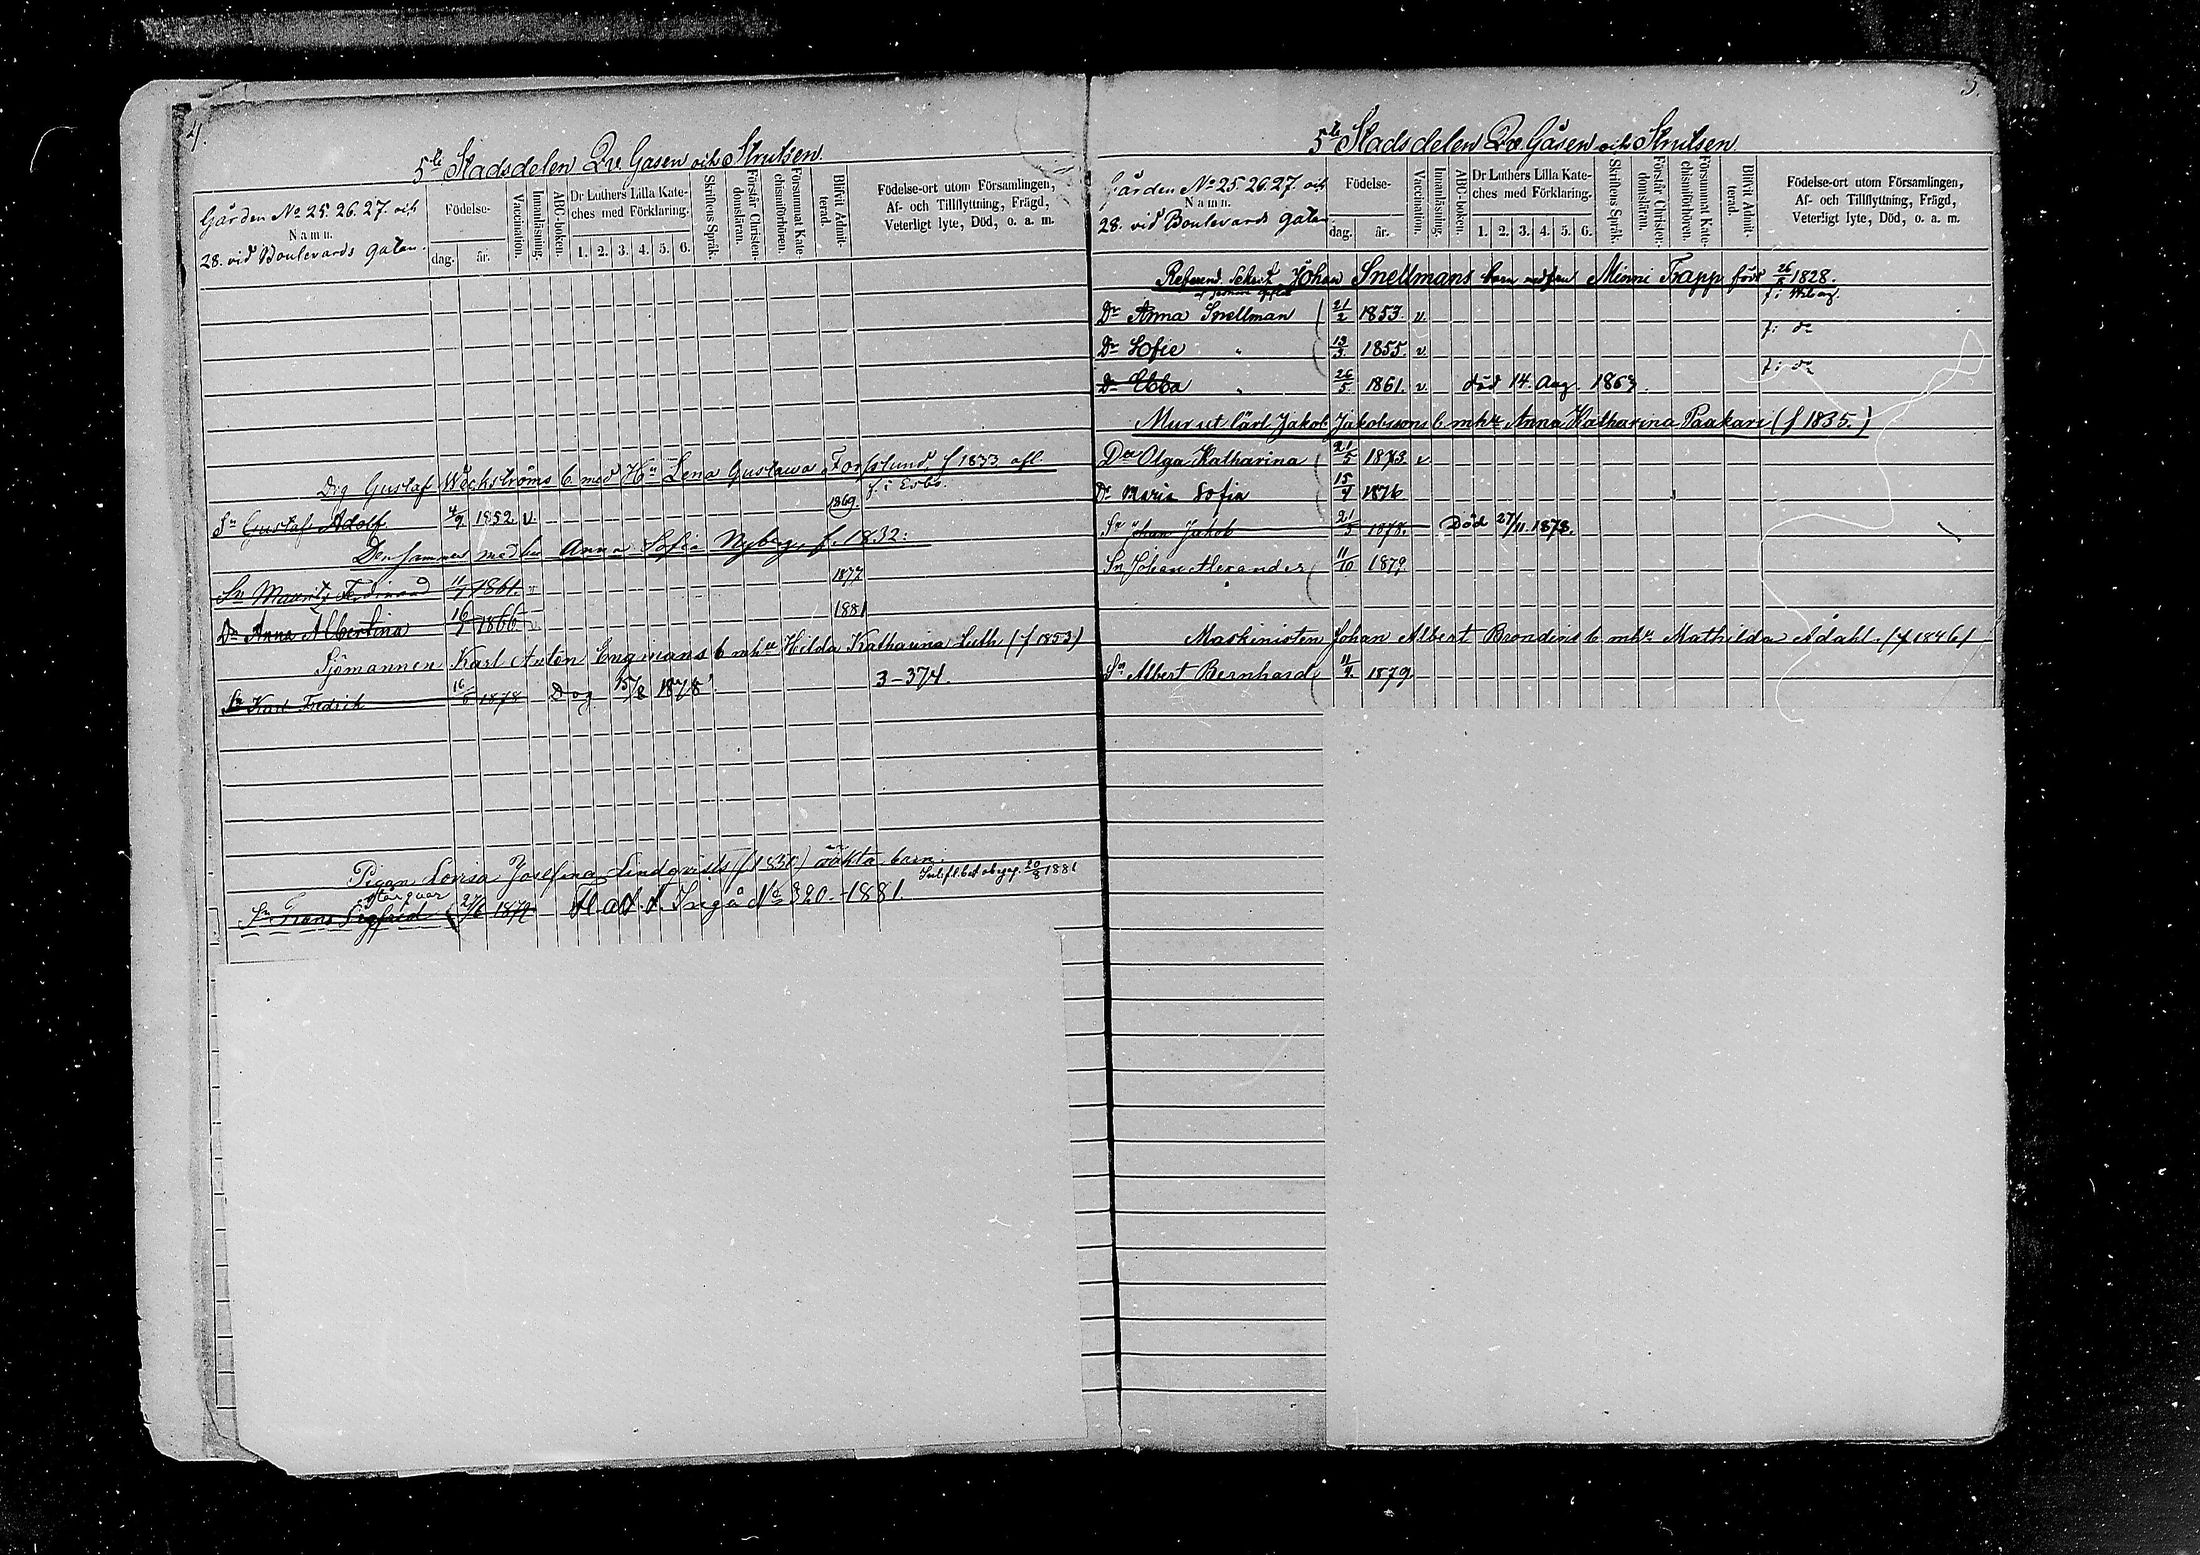 4.
5te Stadsdelen Qv. Gåsen och Strutsen
Gården No 25. 26. 27. och
Namn.
28. vid Boulevards Gatan.
Födelse-
dag.
år.
Vaccination.
Innanläsning.
ABC-boken.
Dr Luthers Lilla Kate-
ches med Förklaring.
1. 2. 3. 4. 5. 6.
Skriftens Språk.
Förstår Christen-
domsläran.
Försummat Kate-
chismiförhören.
Blifvit Admit-
terad.
Födelse-ort utom Församlingen,
Af- och Tillflyttning, Frägd,
Veterligt lyte, Död, o. a. m.
Drg Gustaf Wäckströms b. med Hu Lena Gustawa Forsslund f 1833 afl.
f. i Esbo.
Sn Gustaf Adolf 4/9 1852. v. 1869.
Densammes med hu Anna Sofia Nyberg f. 1832:
Sn Mauritz Ferdinand 11/7 1861. v 1877
Dr Anna Albertina 16/ 1866 1881
Sjömannen Karl Anton Engmans b mhu Hilda Katharina Luth (f 1853)
Sn Karl Fredrik 16/6 1878 Dog 15/8 1878 3-374.
Pigan Lovisa Josefina Lindqvists (f 1850) oäkta barn.
Sn Frans Sigfrid 27/6 1879 No 320-1881. 20/8 1881
5.
5te Stadsdelen Qv. Gåsen och Strutsen
Gården No 25. 26. 27. och
Namn.
28. vid Boulevards Gatan.
Födelse-
dag.
år.
Vaccination.
Innanläsning.
ABC-boken.
Dr Luthers Lilla Kate-
ches med Förklaring.
1. 2. 3. 4. 5. 6.
Skriftens Språk.
Förstår Christen-
domsläran.
Försummat Kate-
chismiförhören.
Blifvit Admit-
terad.
Födelse-ort utom Församlingen,
Af- och Tillflyttning, Frägd,
Veterligt lyte, Död, o. a. m.
Referend. Sekret. Johan Snellmans barn med fru Minni Trapp född 26/8 1828.
Dr Anna Snellman 21/2 1853. v. f. i Wiborg.
Dr Sofie " 13/3 1855. v f. i do
Dr Ebba " 26/5 1861. v död 14. Aug. 1863 f. i do
Murut lärl. Jakob Jakobssons b mhu Anna Katharina Paakari (f 1835.)
Dr Olga Katharina 21/5 1873. v
Dr Maria Sofia 15/4 1876
Sn Johan Jakob 21/3 1878. Död 27/11. 1878.
Sn Johan Alexander 11/10 1879.
Maskinisten Johan Albert Brondins b mhu Mathilda Ådahl (f 1846)
Sn Albert Bernhard 11/4. 1879.